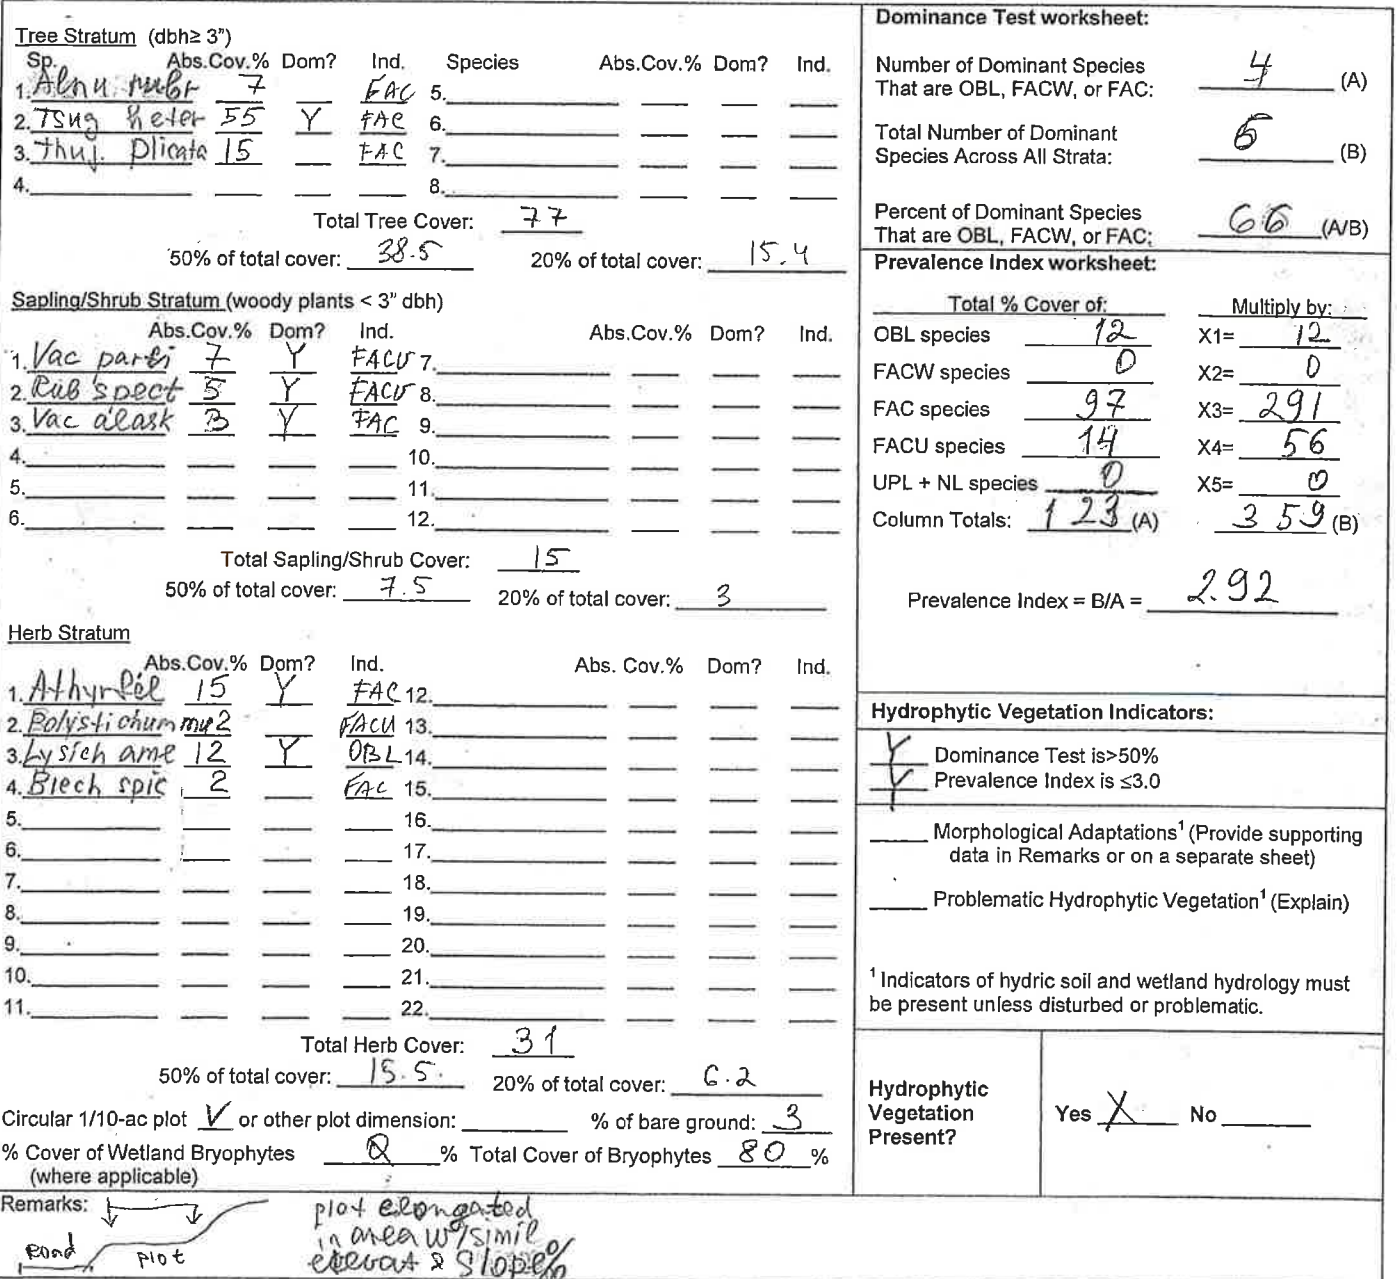 Tree Stratum (dbh≥ 3")
Sp. Abs.Cov.% Dom? Ind. Species Abs.Cov.% Dom? Ind.
1. Alnu rubr 7 ___ FAC 5. ___
2. Tsug heter 55 Y FAC 6. ___
3. Thuj. plicata 15 ___ FAC 7. ___
4. ___ 8. ___
Total Tree Cover: 77
50% of total cover: 38.5 20% of total cover: 15.4
Sapling/Shrub Stratum (woody plants < 3" dbh)
Abs.Cov.% Dom? Ind. Abs.Cov.% Dom? Ind.
1. Vac parvi 7 Y FACU 7. ___
2. Rub spect 5 Y FACU 8. ___
3. Vac alask 3 Y FAC 9. ___
4. ___ 10. ___
5. ___ 11. ___
6. ___ 12. ___
Total Sapling/Shrub Cover: 15
50% of total cover: 7.5 20% of total cover: 3
Herb Stratum
Abs.Cov.% Dom? Ind. Abs. Cov.% Dom? Ind.
1. Athyr fel 15 Y FAC 12. ___
2. Polystichum mu 2 ___ FACU 13. ___
3. Lysich ame 12 Y OBL 14. ___
4. Blech spic 2 ___ FAC 15. ___
5. ___ 16. ___
6. ___ 17. ___
7. ___ 18. ___
8. ___ 19. ___
9. ___ 20. ___
10. ___ 21. ___
11. ___ 22. ___
Total Herb Cover: 31
50% of total cover: 15.5. 20% of total cover: 6.2
Circular 1/10-ac plot V or other plot dimension: ___ % of bare ground: 3
% Cover of Wetland Bryophytes ___ % Total Cover of Bryophytes 80 %
(where applicable)
Remarks:
Road plot
plot elongated
in area w/simil
elevat & slope%
Dominance Test worksheet:
Number of Dominant Species
That are OBL, FACW, or FAC: 4 (A)
Total Number of Dominant
Species Across All Strata: 6 (B)
Percent of Dominant Species
That are OBL, FACW, or FAC: 66 (A/B)
Prevalence Index worksheet:
Total % Cover of: Multiply by:
OBL species 12 X1= 12
FACW species 0 X2= 0
FAC species 97 X3= 291
FACU species 14 X4= 56
UPL + NL species 0 X5= 0
Column Totals: 123 (A) 359 (B)
Prevalence Index = B/A = 2.92
Hydrophytic Vegetation Indicators:
Y Dominance Test is>50%
Y Prevalence Index is ≤3.0
___ Morphological Adaptations¹ (Provide supporting
data in Remarks or on a separate sheet)
___ Problematic Hydrophytic Vegetation¹ (Explain)
¹ Indicators of hydric soil and wetland hydrology must
be present unless disturbed or problematic.
Hydrophytic
Vegetation
Present?
Yes X No ___